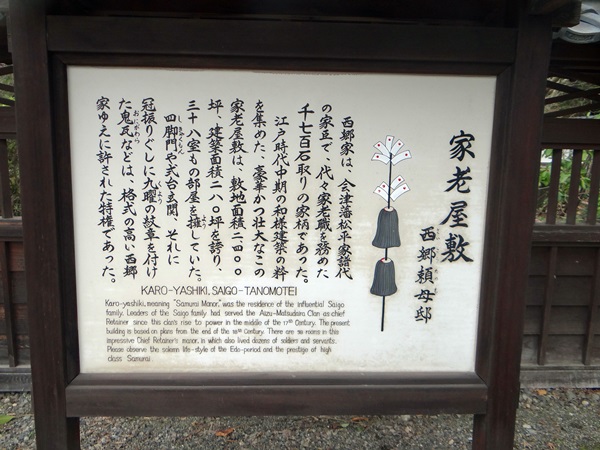 家老屋敷
西郷頼母邸
西郷家は、会津藩松平家譜代
の家臣で、代々家老職を務めた
千七百石取りの家柄であった。
江戸時代中期の和様建築の粋
を集めた、豪華かつ壮大なこの
家老屋敷は、敷地面積二四〇〇
坪、建築面積二八〇坪を誇り、
三十八室もの部屋を擁していた。
四脚門や式台玄関、それに
冠振りぐしに九曜の紋章を付け
た鬼瓦などは、格式の高い西郷
家ゆえに許された特権であった。
KARO-YASHIKI, SAIGO-TANOMOTEI
Karo-yashiki, meaning "Samurai Manor," was the residence of the influential Saigo
family. Leaders of the Saigo family had served the Aizu-Matsudaira Clan as chief
Retainer since this clan's rise to power in the middle of the 17th Century. The present
building is based on plans from the end of the 18th Century. There are 38 rooms in this
impressive Chief Retainer's manor, in which also lived dozens of soldiers and servants.
Please observe the solemn life-style of the Edo-period and the prestige of high
class Samurai.